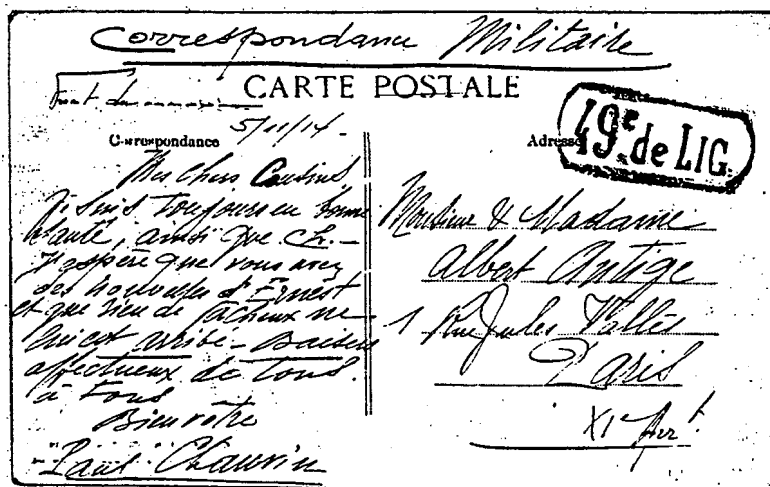 Correspondance Militaire
CARTE POSTALE
Front
5/11/14.
Correspondance
Adresse
49e de LIG.
Mes chers Cousins
Je suis toujours en bonne
santé, ainsi que Ch. –
J'espère que vous avez
des nouvelles d'Ernest
et que rien de fâcheux ne
lui est arrivé – Baisers
affectueux de tous.
à tous
Bien vôtre
Paul Chauvin
Monsieur & Madame
Albert Antige
1 Rue Jules Vallès
Paris
XIe Arrt